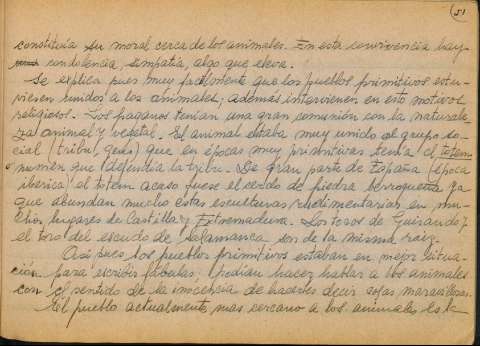 51
constituía su moral cerca de los animales. En esta convivencia hay
condolencia, simpatía, algo que eleva.
Se explica pues muy facilmente que los pueblos primitivos estu-
viesen unidos a los animales; además intervienen en esto motivos
religiosos. Los paganos tenían una gran comunión con la naturale-
za animal y vegetal. El animal estaba muy unido al grupo so-
cial (tribu, gens) que en épocas muy primitivas tenía el totem
o numen que defendía la tribu. De gran parte de España (época
iberica) el totem acaso fuese el cerdo de piedra berroqueña ya
que abundan mucho estas esculturas rudimentarias en mu-
chos lugares de Castilla y Extremadura. Los toros de Guisando y
el toro del escudo de Salamanca son de la misma raiz.
Asi pues los pueblos primitivos estaban en mejor situa-
ción para escribir fábulas. Podían hacer hablar a los animales
con el sentido de la inocencia de hacerles decir cosas maravillosas.
El pueblo actualmente mas cercano a los animales es